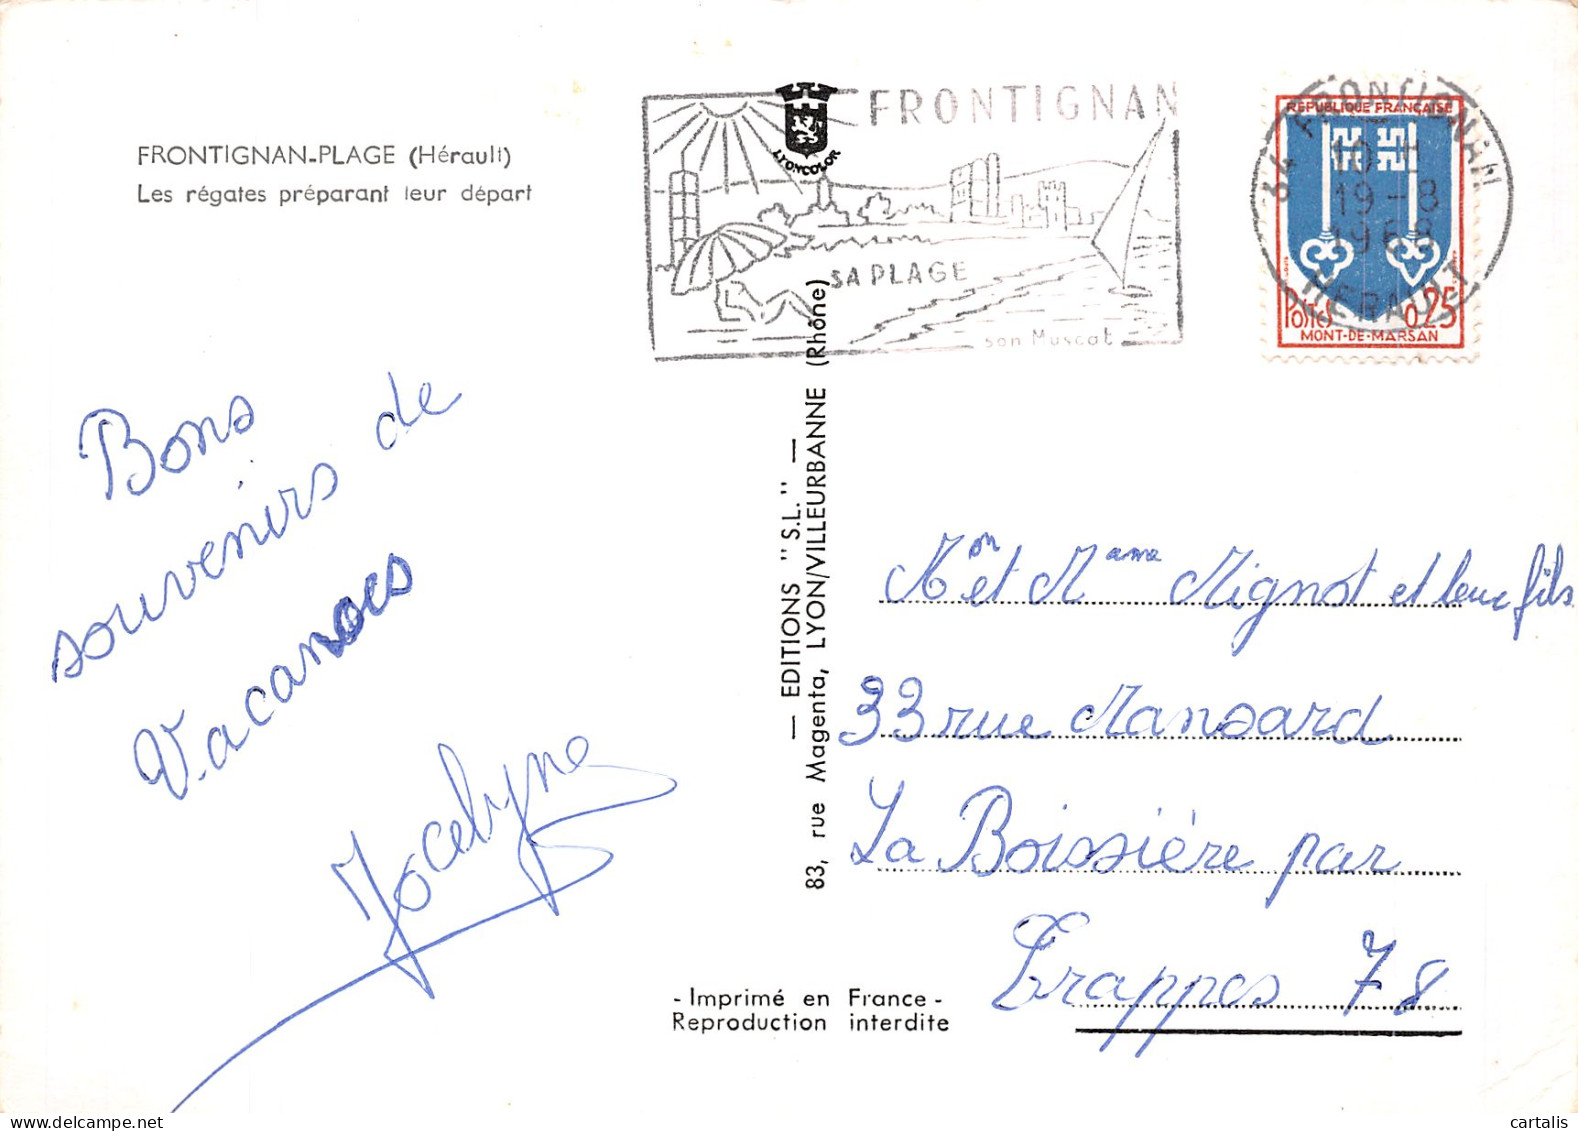 FRONTIGNAN-PLAGE (Hérault)
Les régates préparant leur départ
LYONCOLOR
FRONTIGNAN
SA PLAGE
son Muscat
34 FRONTIGNAN
19-8
1968
HERAULT
REPUBLIQUE FRANÇAISE
POSTES 0,25
MONT-DE-MARSAN
Bons
souvenirs de
Vacances
Jocelyne
— EDITIONS "S.L." —
83, rue Magenta, LYON/VILLEURBANNE (Rhône)
Mon et Mame Mignot et leur fils
33 rue Mansard
La Boissière par
Trappes 78
- Imprimé en France -
Reproduction interdite
bonnesaffaires
cartalis